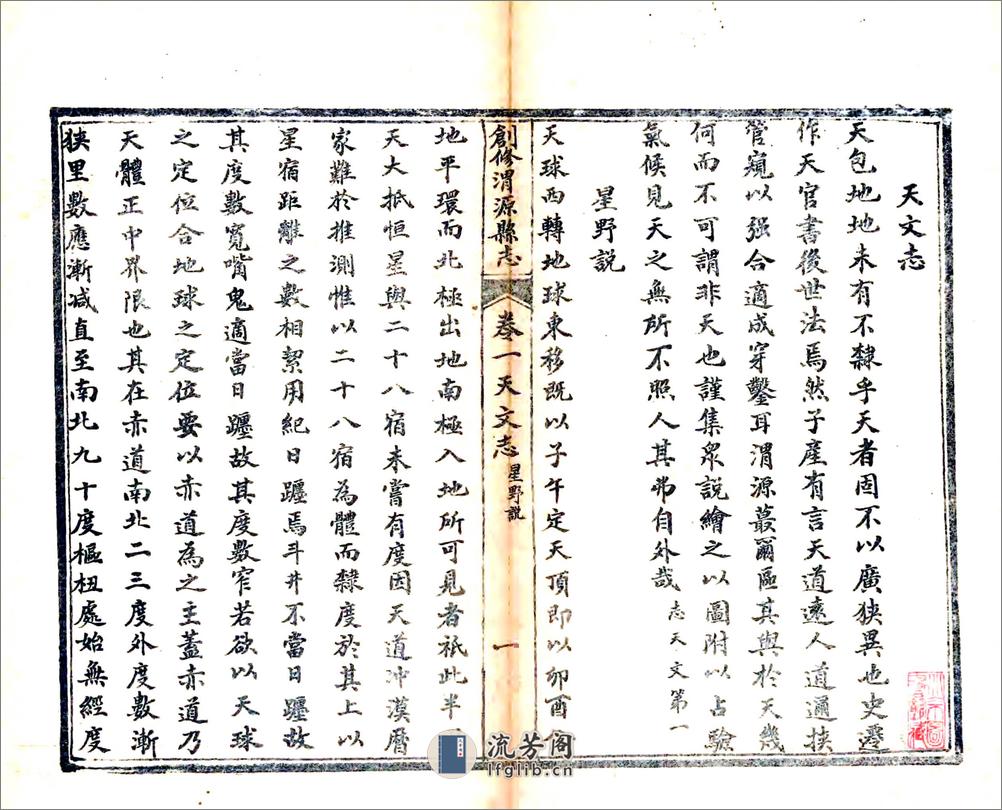 天文志
天包地地未有不隸乎天者固不以廣狹異也史遷
作天官書後世法焉然子產有言天道遠人道邇挾
管窺以强合適成穿鑿耳渭源蕞爾區其與於天幾
何而不可謂非天也謹集衆說繪之以圖附以占驗
氣候見天之無所不照人其弗自外哉 志天文第一
星野說
天球西轉地球東移既以子午定天頂即以卯酉
創修渭源縣志 卷一天文志 星野說 一
地平環而北極出地南極入地所可見者祇此半
天大抵恒星與二十八宿未嘗有度因天道沖漠曆
家難於推測惟以二十八宿為體而隸度於其上以
星宿距離之數相絜用紀日躔焉斗井不當日躔故
其度數寬嘴鬼適當日躔故其度數窄若欲以天球
之定位合地球之定位要以赤道為之主蓋赤道乃
天體正中界限也其在赤道南北二三度外度數漸
狹里數應漸减直至南北九十度樞杻處始無經度
流芳阁
lfglib.cn